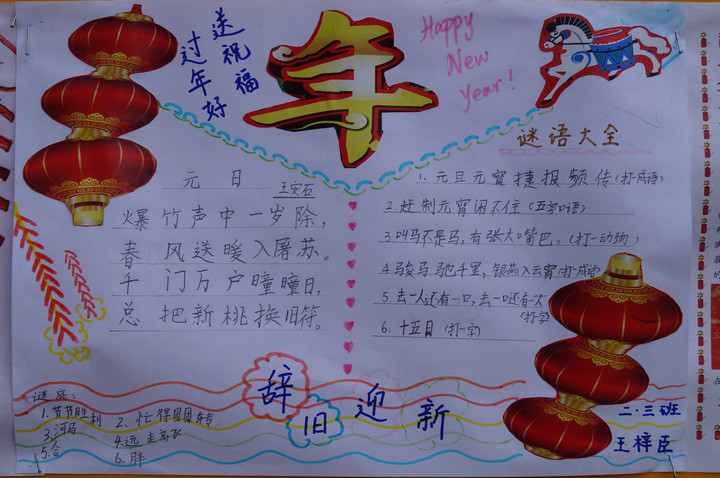 送祝福
过年好
年
Happy
New
Year!
谜语大全
元日
王安石
爆竹声中一岁除,
春风送暖入屠苏。
千门万户曈曈日,
总把新桃换旧符。
1. 元旦元宵捷报频传(打一成语)
2. 赶制元宵闲不住(五字口语)
3. 叫马不是马,有张大嘴巴。(打一动物)
4. 骏马驰千里,银燕入云霄(打一成语)
5. 去一人还有一口,去一口还有一人
(打一字)
6. 十五日(打一字)
辞旧迎新
谜底:
1.节节胜利 2、忙得团团转
3.河马 4.远走高飞
5.合 6.胖
二·三班
王梓臣